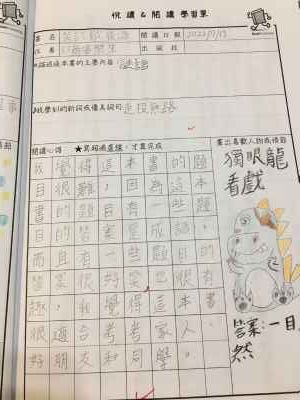 悅讀&閱讀學習單
書名
閱讀日期 2022/7/13
作者
出版社
描述這本書的主要內容:謎題
我學到的新詞或優美詞句:走投無路
閱讀心得 ★寫超過直線,才算完成
畫出喜歡人物或情節
我覺得這本書的題
目很難,因為這本
書的題目有一些題
目的答案是成語,
而且有一些題目的
答案很好笑也很有
趣,我覺得這本書
很適合考考家人、
好朋友和同學。
獨眼龍
看戲
答案:一目
然